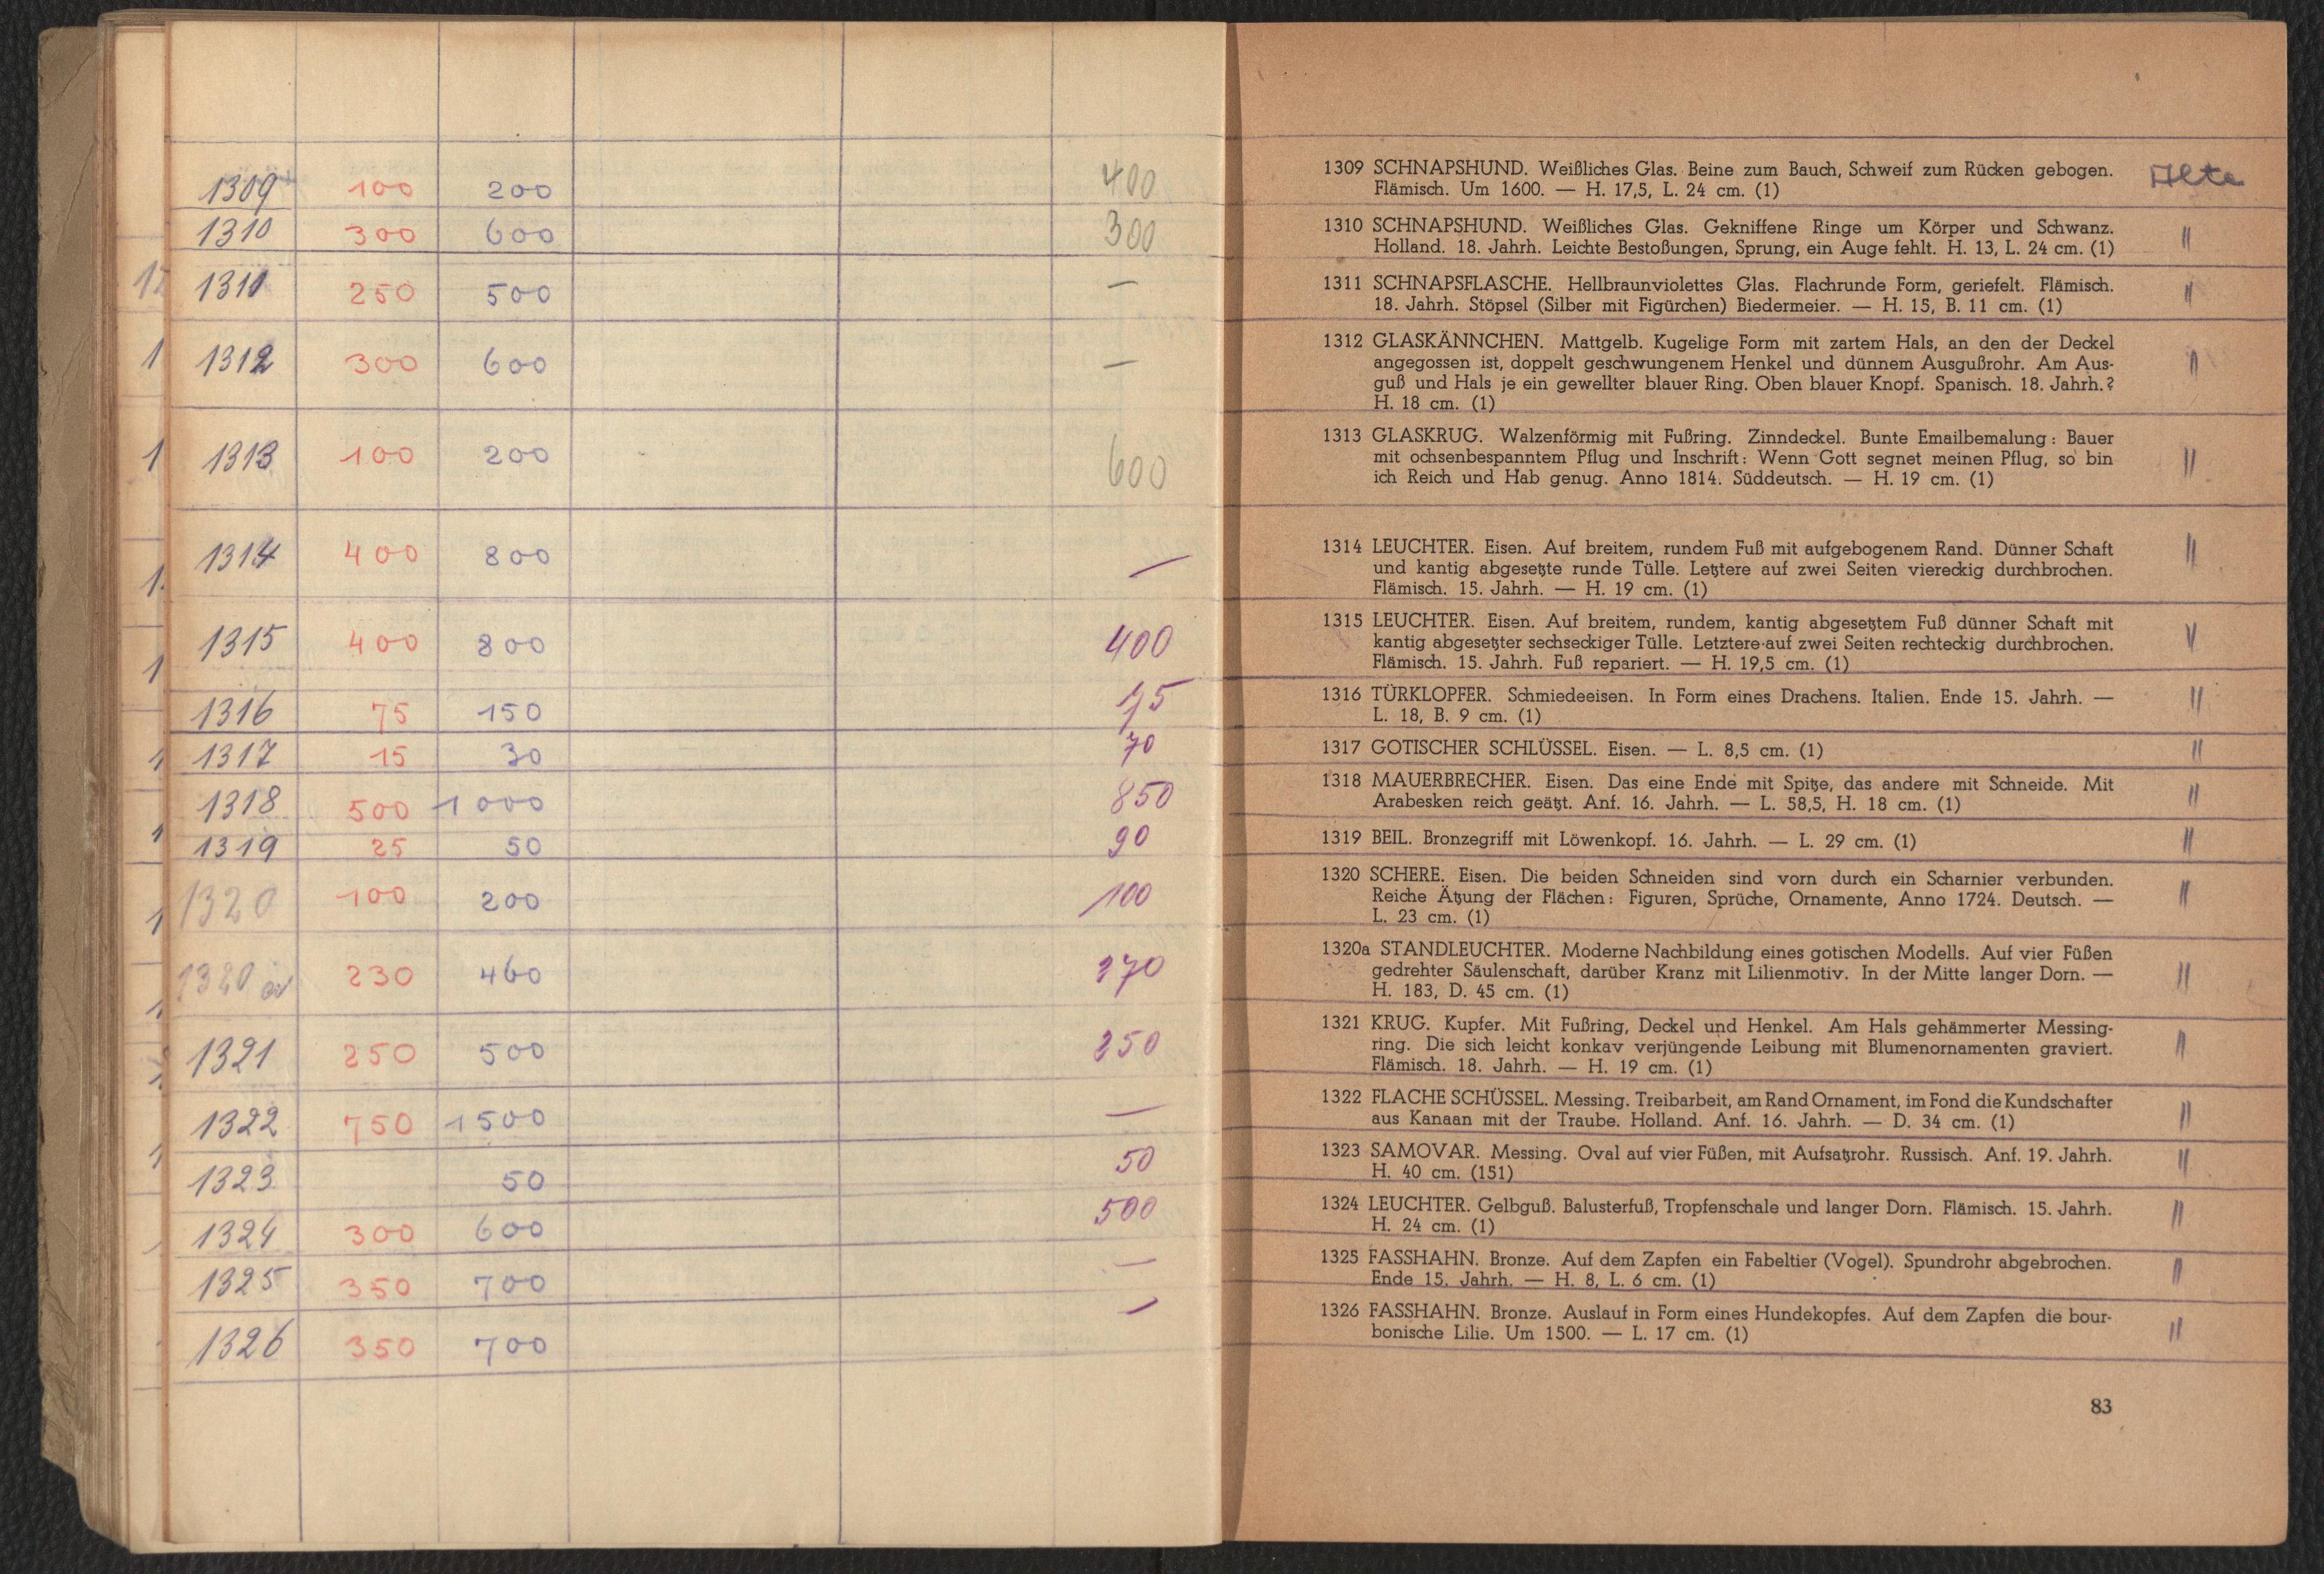 1309 100 200 400
1310 300 600 300
1311 250 500 —
1312 300 600 —
1313 100 200 600
1314 400 800 —
1315 400 800 400
1316 75 150
1317 15 30 70
1318 500 1000 850
1319 25 50 90
1320 100 200 100
1320 a 230 460 270
1321 250 500 250
1322 750 1500 —
1323 50 50
1324 300 600 500
1325 350 700 —
1326 350 700 —
1309 SCHNAPSHUND. Weißliches Glas. Beine zum Bauch, Schweif zum Rücken gebogen. Alte
Flämisch. Um 1600. — H. 17,5, L. 24 cm. (1)
1310 SCHNAPSHUND. Weißliches Glas. Gekniffene Ringe um Körper und Schwanz. "
Holland. 18. Jahrh. Leichte Bestoßungen, Sprung, ein Auge fehlt. H. 13, L. 24 cm. (1)
1311 SCHNAPSFLASCHE. Hellbraunviolettes Glas. Flachrunde Form, geriefelt. Flämisch. "
18. Jahrh. Stöpsel (Silber mit Figürchen) Biedermeier. — H. 15, B. 11 cm. (1)
1312 GLASKÄNNCHEN. Mattgelb. Kugelige Form mit zartem Hals, an den der Deckel
angegossen ist, doppelt geschwungenem Henkel und dünnem Ausgußrohr. Am Aus- "
guß und Hals je ein gewellter blauer Ring. Oben blauer Knopf. Spanisch. 18. Jahrh.?
H. 18 cm. (1)
1313 GLASKRUG. Walzenförmig mit Fußring. Zinndeckel. Bunte Emailbemalung: Bauer
mit ochsenbespanntem Pflug und Inschrift: Wenn Gott segnet meinen Pflug, so bin "
ich Reich und Hab genug. Anno 1814. Süddeutsch. — H. 19 cm. (1)
1314 LEUCHTER. Eisen. Auf breitem, rundem Fuß mit aufgebogenem Rand. Dünner Schaft "
und kantig abgesetzte runde Tülle. Letztere auf zwei Seiten viereckig durchbrochen.
Flämisch. 15. Jahrh. — H. 19 cm. (1)
1315 LEUCHTER. Eisen. Auf breitem, rundem, kantig abgesetztem Fuß dünner Schaft mit "
kantig abgesetzter sechseckiger Tülle. Letztere auf zwei Seiten rechteckig durchbrochen.
Flämisch. 15. Jahrh. Fuß repariert. — H. 19,5 cm. (1)
1316 TÜRKLOPFER. Schmiedeeisen. In Form eines Drachens. Italien. Ende 15. Jahrh. — "
L. 18, B. 9 cm. (1)
1317 GOTISCHER SCHLÜSSEL. Eisen. — L. 8,5 cm. (1) "
1318 MAUERBRECHER. Eisen. Das eine Ende mit Spitze, das andere mit Schneide. Mit "
Arabesken reich geätzt. Anf. 16. Jahrh. — L. 58,5, H. 18 cm. (1)
1319 BEIL. Bronzegriff mit Löwenkopf. 16. Jahrh. — L. 29 cm. (1) "
1320 SCHERE. Eisen. Die beiden Schneiden sind vorn durch ein Scharnier verbunden. "
Reiche Ätzung der Flächen: Figuren, Sprüche, Ornamente, Anno 1724. Deutsch. —
L. 23 cm. (1)
1320a STANDLEUCHTER. Moderne Nachbildung eines gotischen Modells. Auf vier Füßen
gedrehter Säulenschaft, darüber Kranz mit Lilienmotiv. In der Mitte langer Dorn. — "
H. 183, D. 45 cm. (1)
1321 KRUG. Kupfer. Mit Fußring, Deckel und Henkel. Am Hals gehämmerter Messing-
ring. Die sich leicht konkav verjüngende Leibung mit Blumenornamenten graviert. "
Flämisch. 18. Jahrh. — H. 19 cm. (1)
1322 FLACHE SCHÜSSEL. Messing. Treibarbeit, am Rand Ornament, im Fond die Kundschafter "
aus Kanaan mit der Traube. Holland. Anf. 16. Jahrh. — D. 34 cm. (1)
1323 SAMOVAR. Messing. Oval auf vier Füßen, mit Aufsatzrohr. Russisch. Anf. 19. Jahrh. "
H. 40 cm. (151)
1324 LEUCHTER. Gelbguß. Balusterfuß, Tropfenschale und langer Dorn. Flämisch. 15. Jahrh. "
H. 24 cm. (1)
1325 FASSHAHN. Bronze. Auf dem Zapfen ein Fabeltier (Vogel). Spundrohr abgebrochen. "
Ende 15. Jahrh. — H. 8, L. 6 cm. (1)
1326 FASSHAHN. Bronze. Auslauf in Form eines Hundekopfes. Auf dem Zapfen die bour- "
bonische Lilie. Um 1500. — L. 17 cm. (1)
83